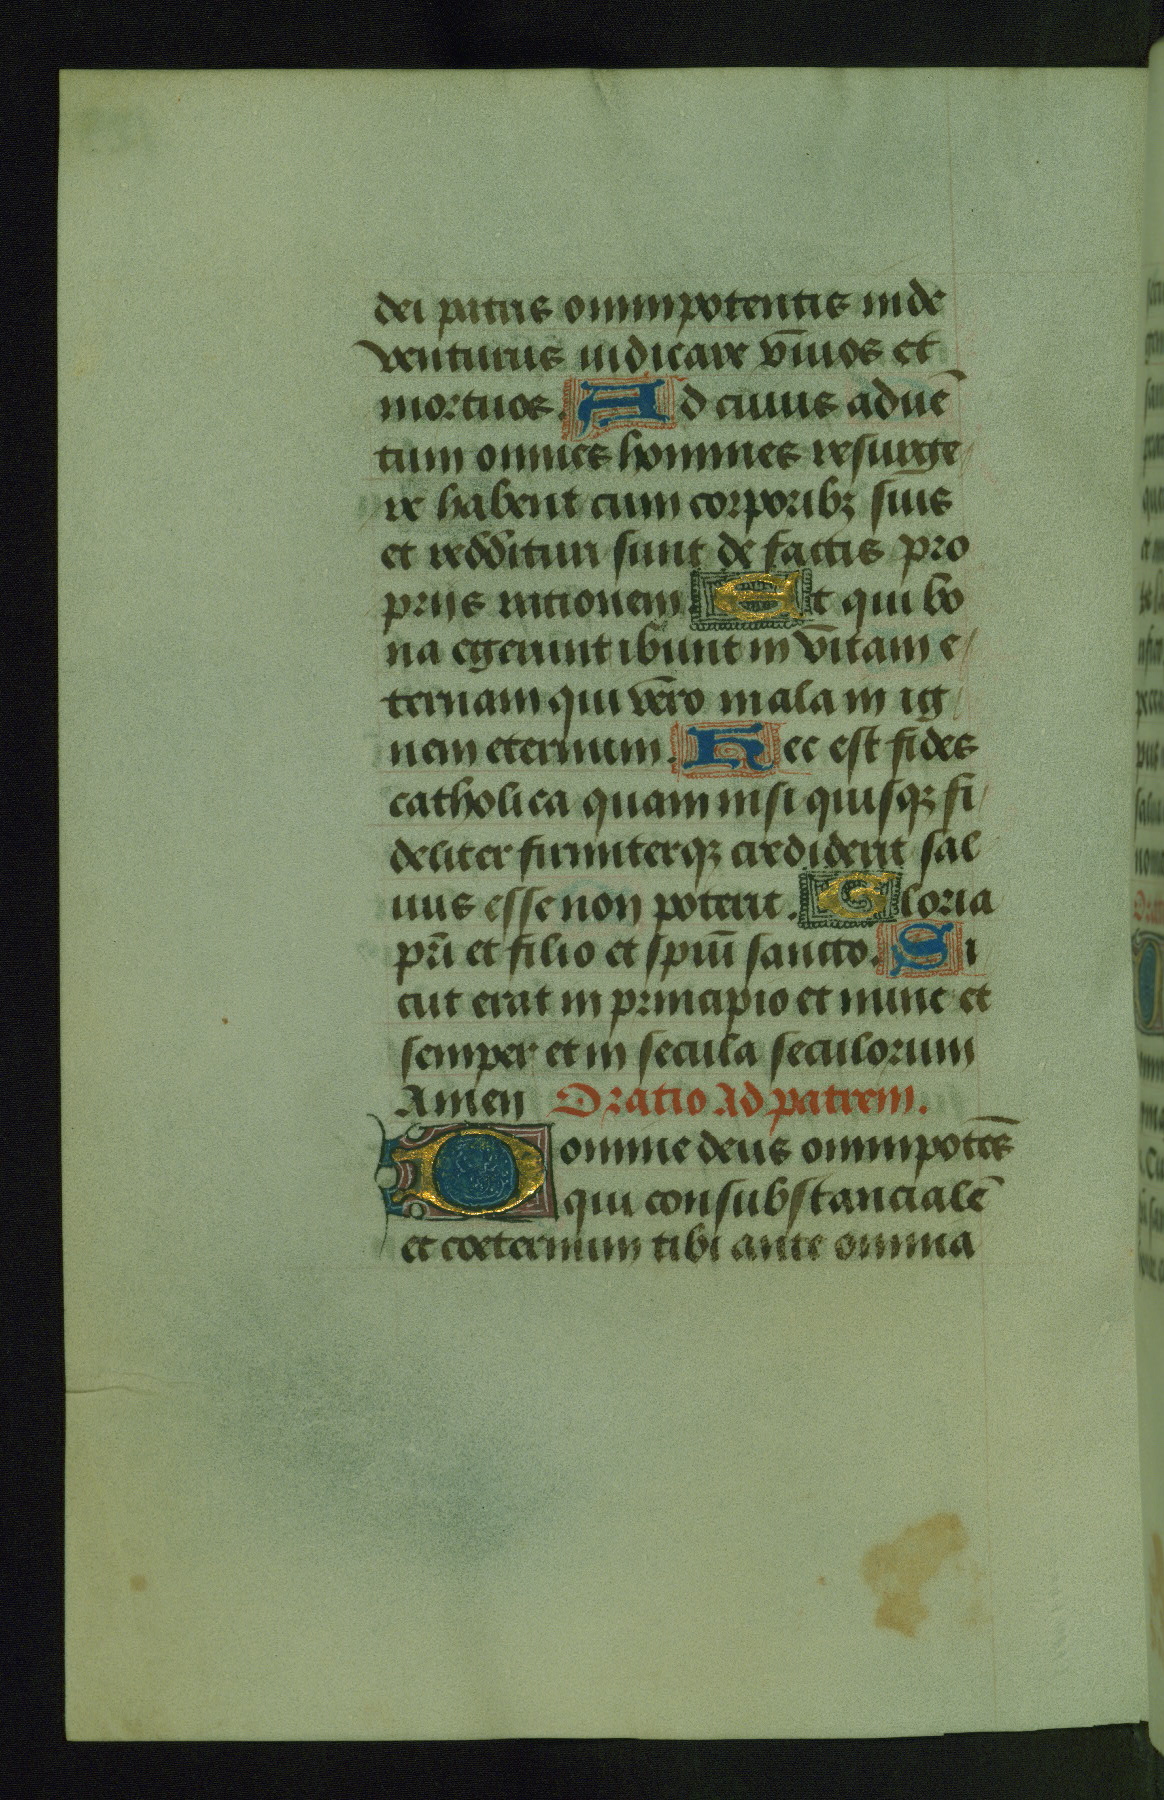 dei patris omnipotentis inde
venturus iudicare viuos et
mortuos. Ad cuius aduē
tum omnes homines resurge
re habent cum corporibꝫ suis
et reddituri sunt de factis pro
priis rationem Et qui bo
na egerunt ibunt in vitam e
ternam qui vero mala in ig
nem eternum. Hec est fides
catholica quam nisi quisqꝫ fi
deliter firmiterqꝫ crediderit sal
uus esse non poterit. Gloria
pr̄i et filio et spiūi sancto. Si
cut erat in principio et nunc et
semper et in secula seculorum
Amen Oratio Ad patrem.
Domine deus omnipotēs
qui consubstancialē
et coeternum tibi ante omnia